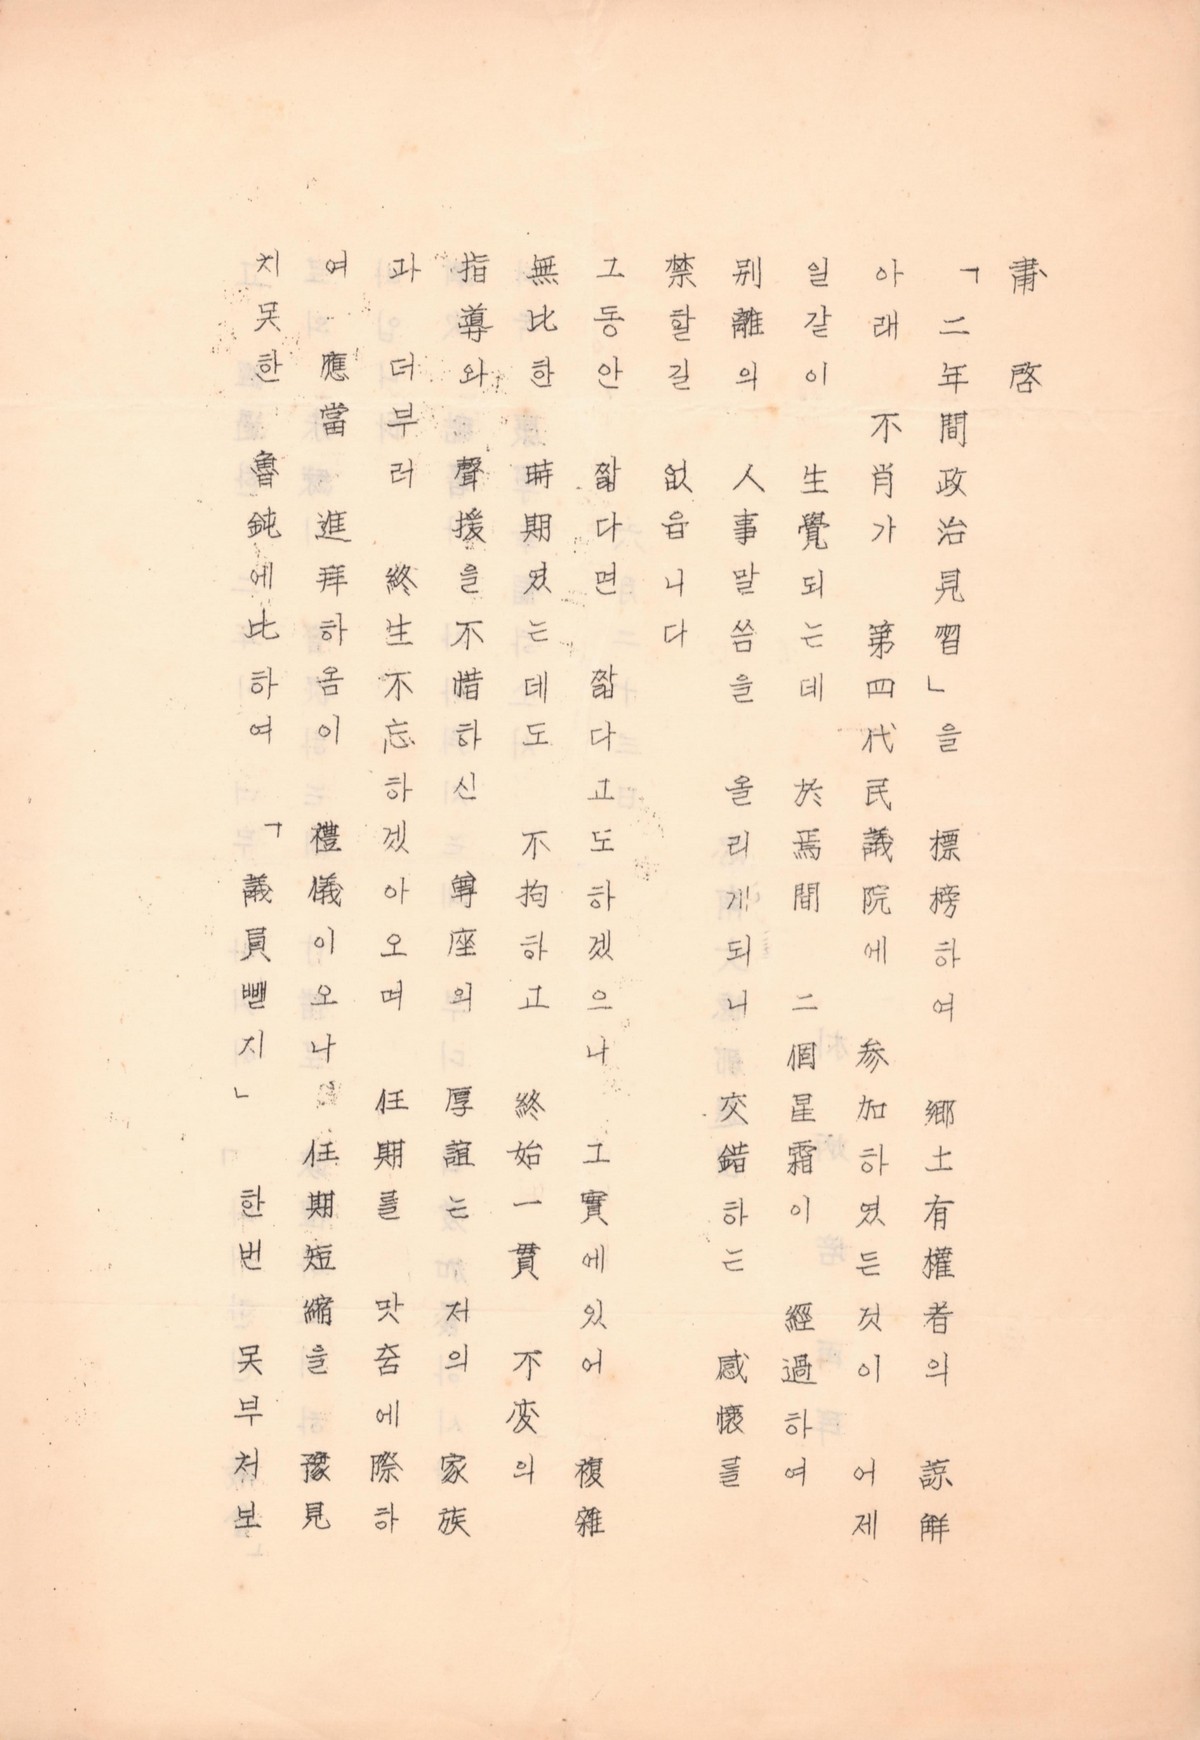 肅啓
「二年間政治見習」을 標榜하여 鄕土有權者의 諒解
아래 不肖가 第四代民議院에 参加하였든것이 어제
일같이 生覺되는데 於焉間 二個星霜이 經過하여
別離의 人事말씀을 올리게되니 交錯하는 感懷를
禁할길 없읍니다
그동안 짧다면 짧다고도하겠으나 그實에있어 複雜
無比한 時期였는데도 不拘하고 終始一貫 不変의
指導와 聲援을不惜하신 尊座의 厚誼는 저의 家族
과 더부러 終生不忘하겠아오며 任期를 맞춤에際하
여 應當 進拜하옴이 禮儀이오나 任期短縮을 豫見
치못한 魯鈍에比하여 「議員뺃지」 한번 못부처보